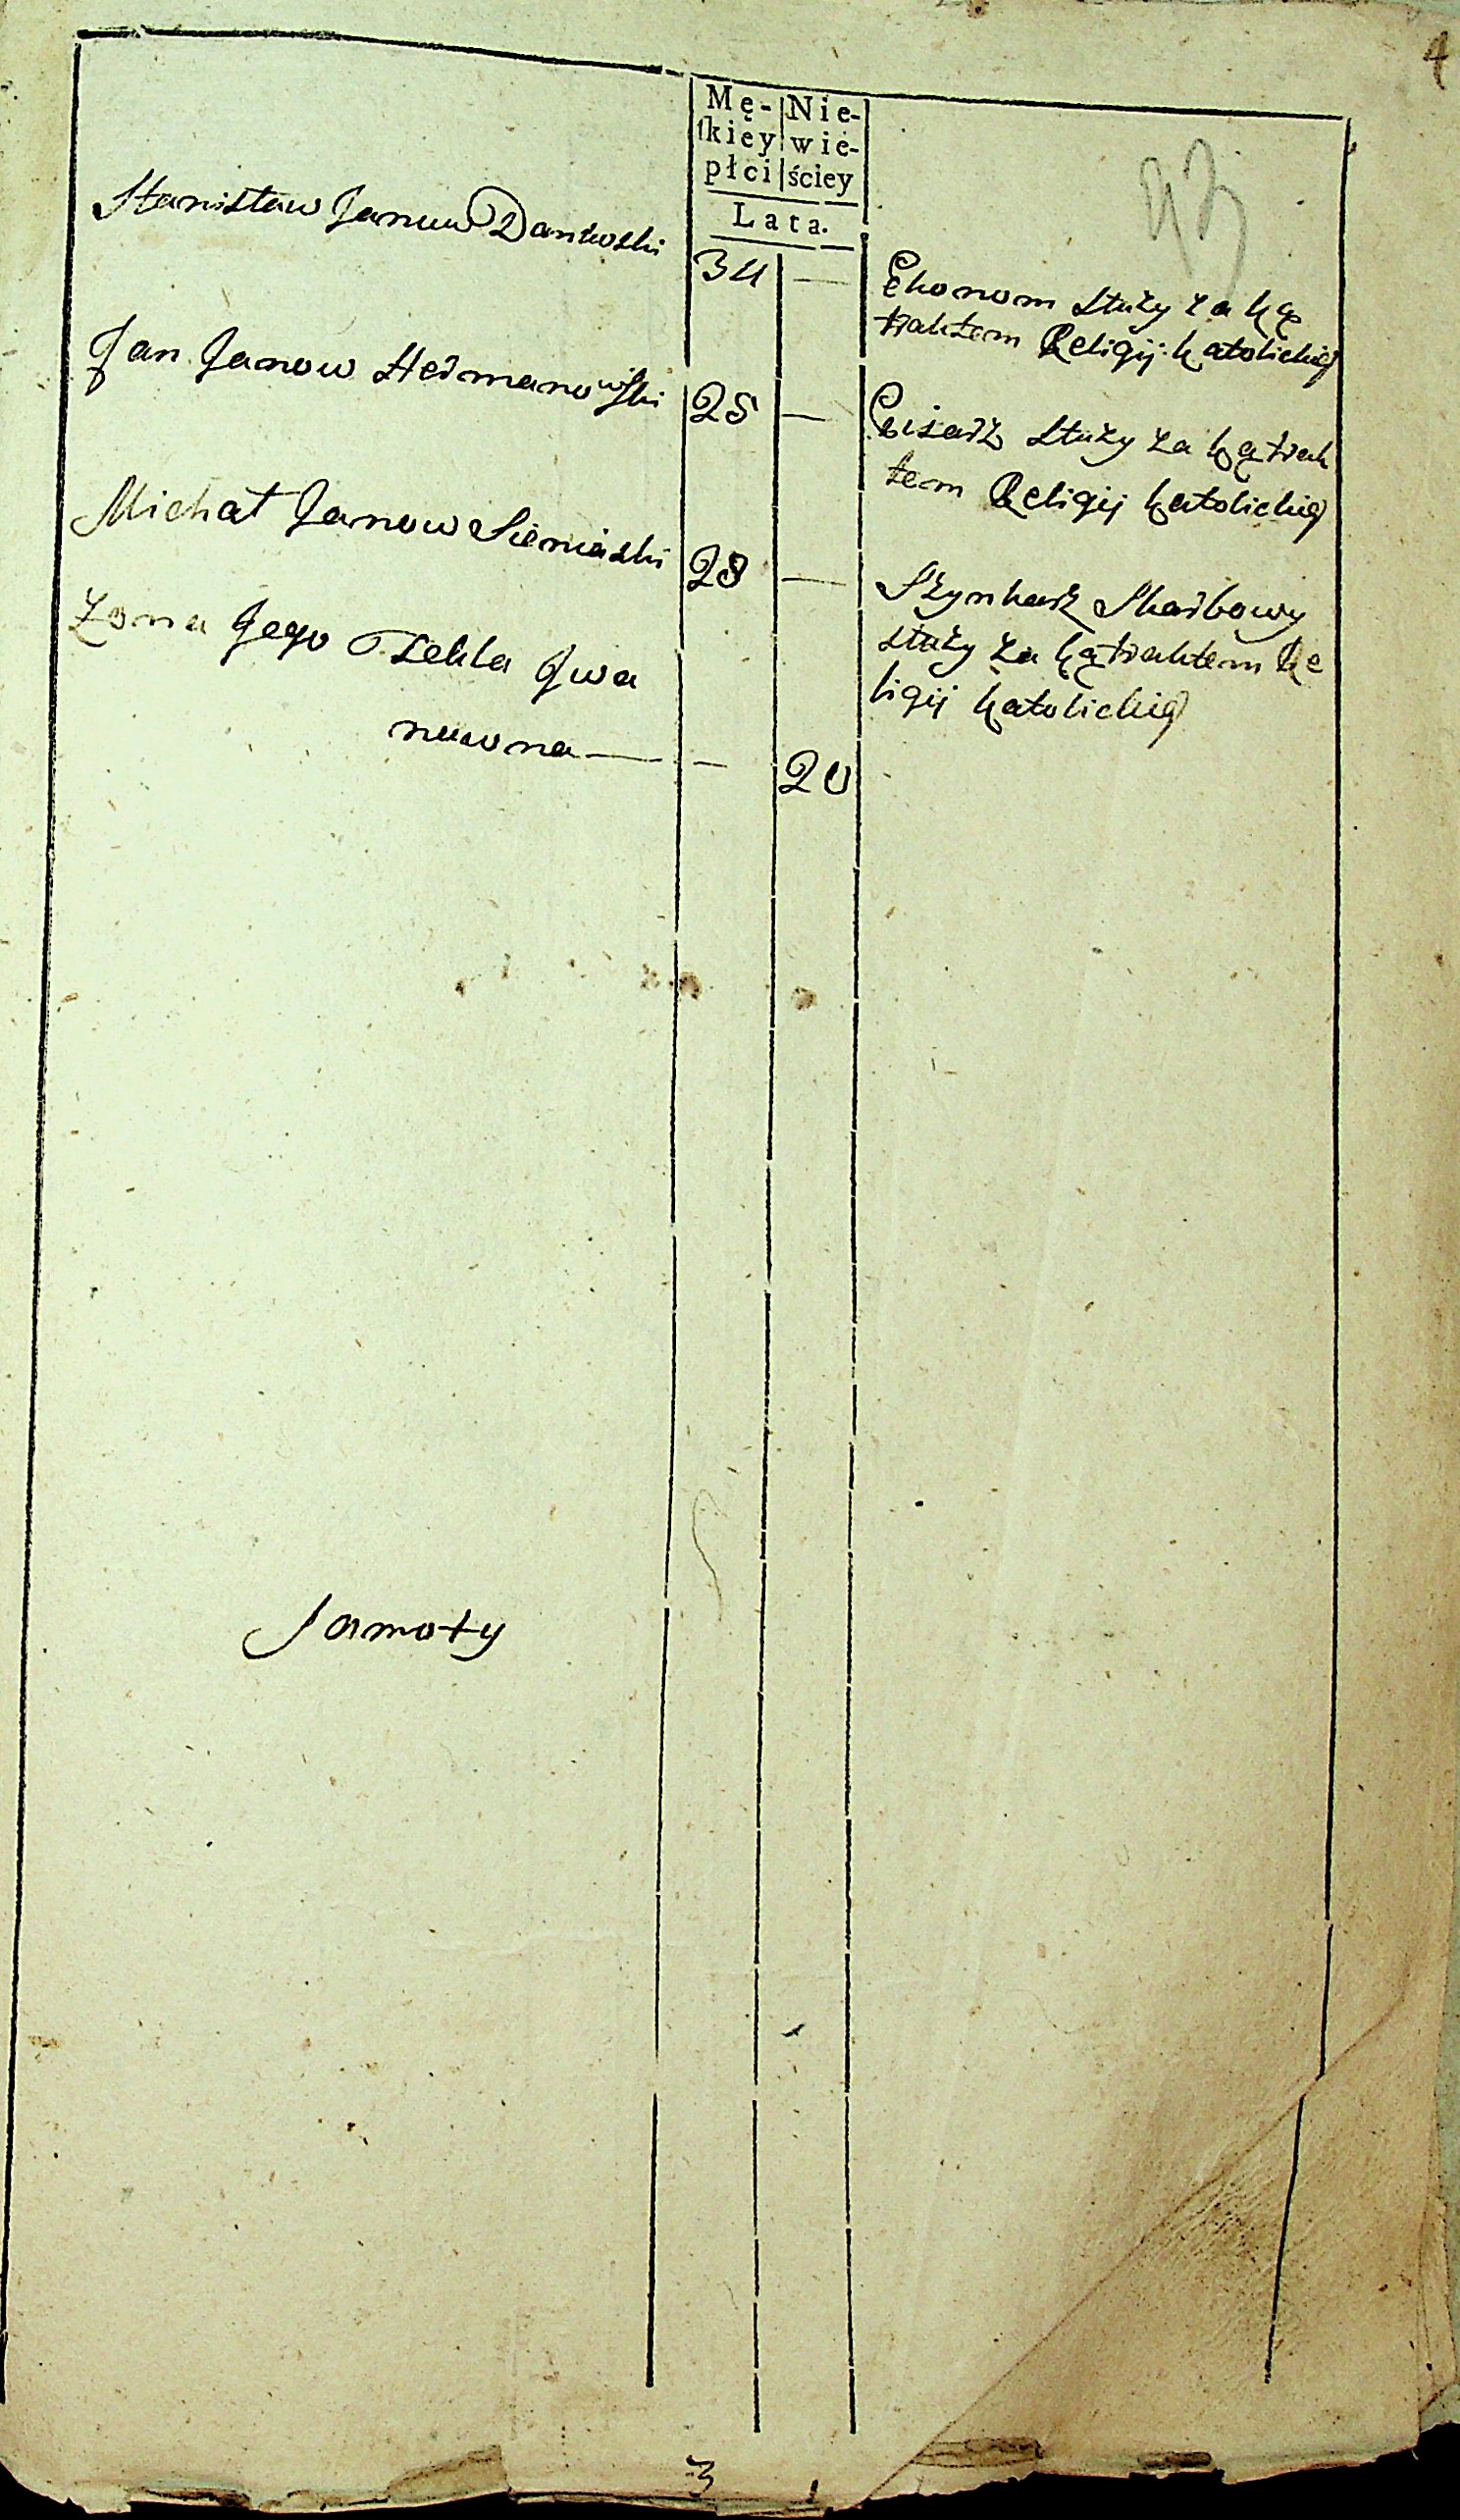 4
Mę- Nie-
ſkiey wie-
płci ściey
Lata.
93
Stanisław Janow Dankoski
34 —
Ekonom służy za Ką
traktem Religij Katolickię
Jan Janow Hermanowski
25 —
Pisarz służy za Kątrak
tem Religij Katolickię
Michał Janow Siemiaski
28 —
Szynkarz Skarbowy
służy za Kątraktem Re
ligij Katolickię
Zona Jego Tekla Jwa
nowna — — 20
Jamoty
3